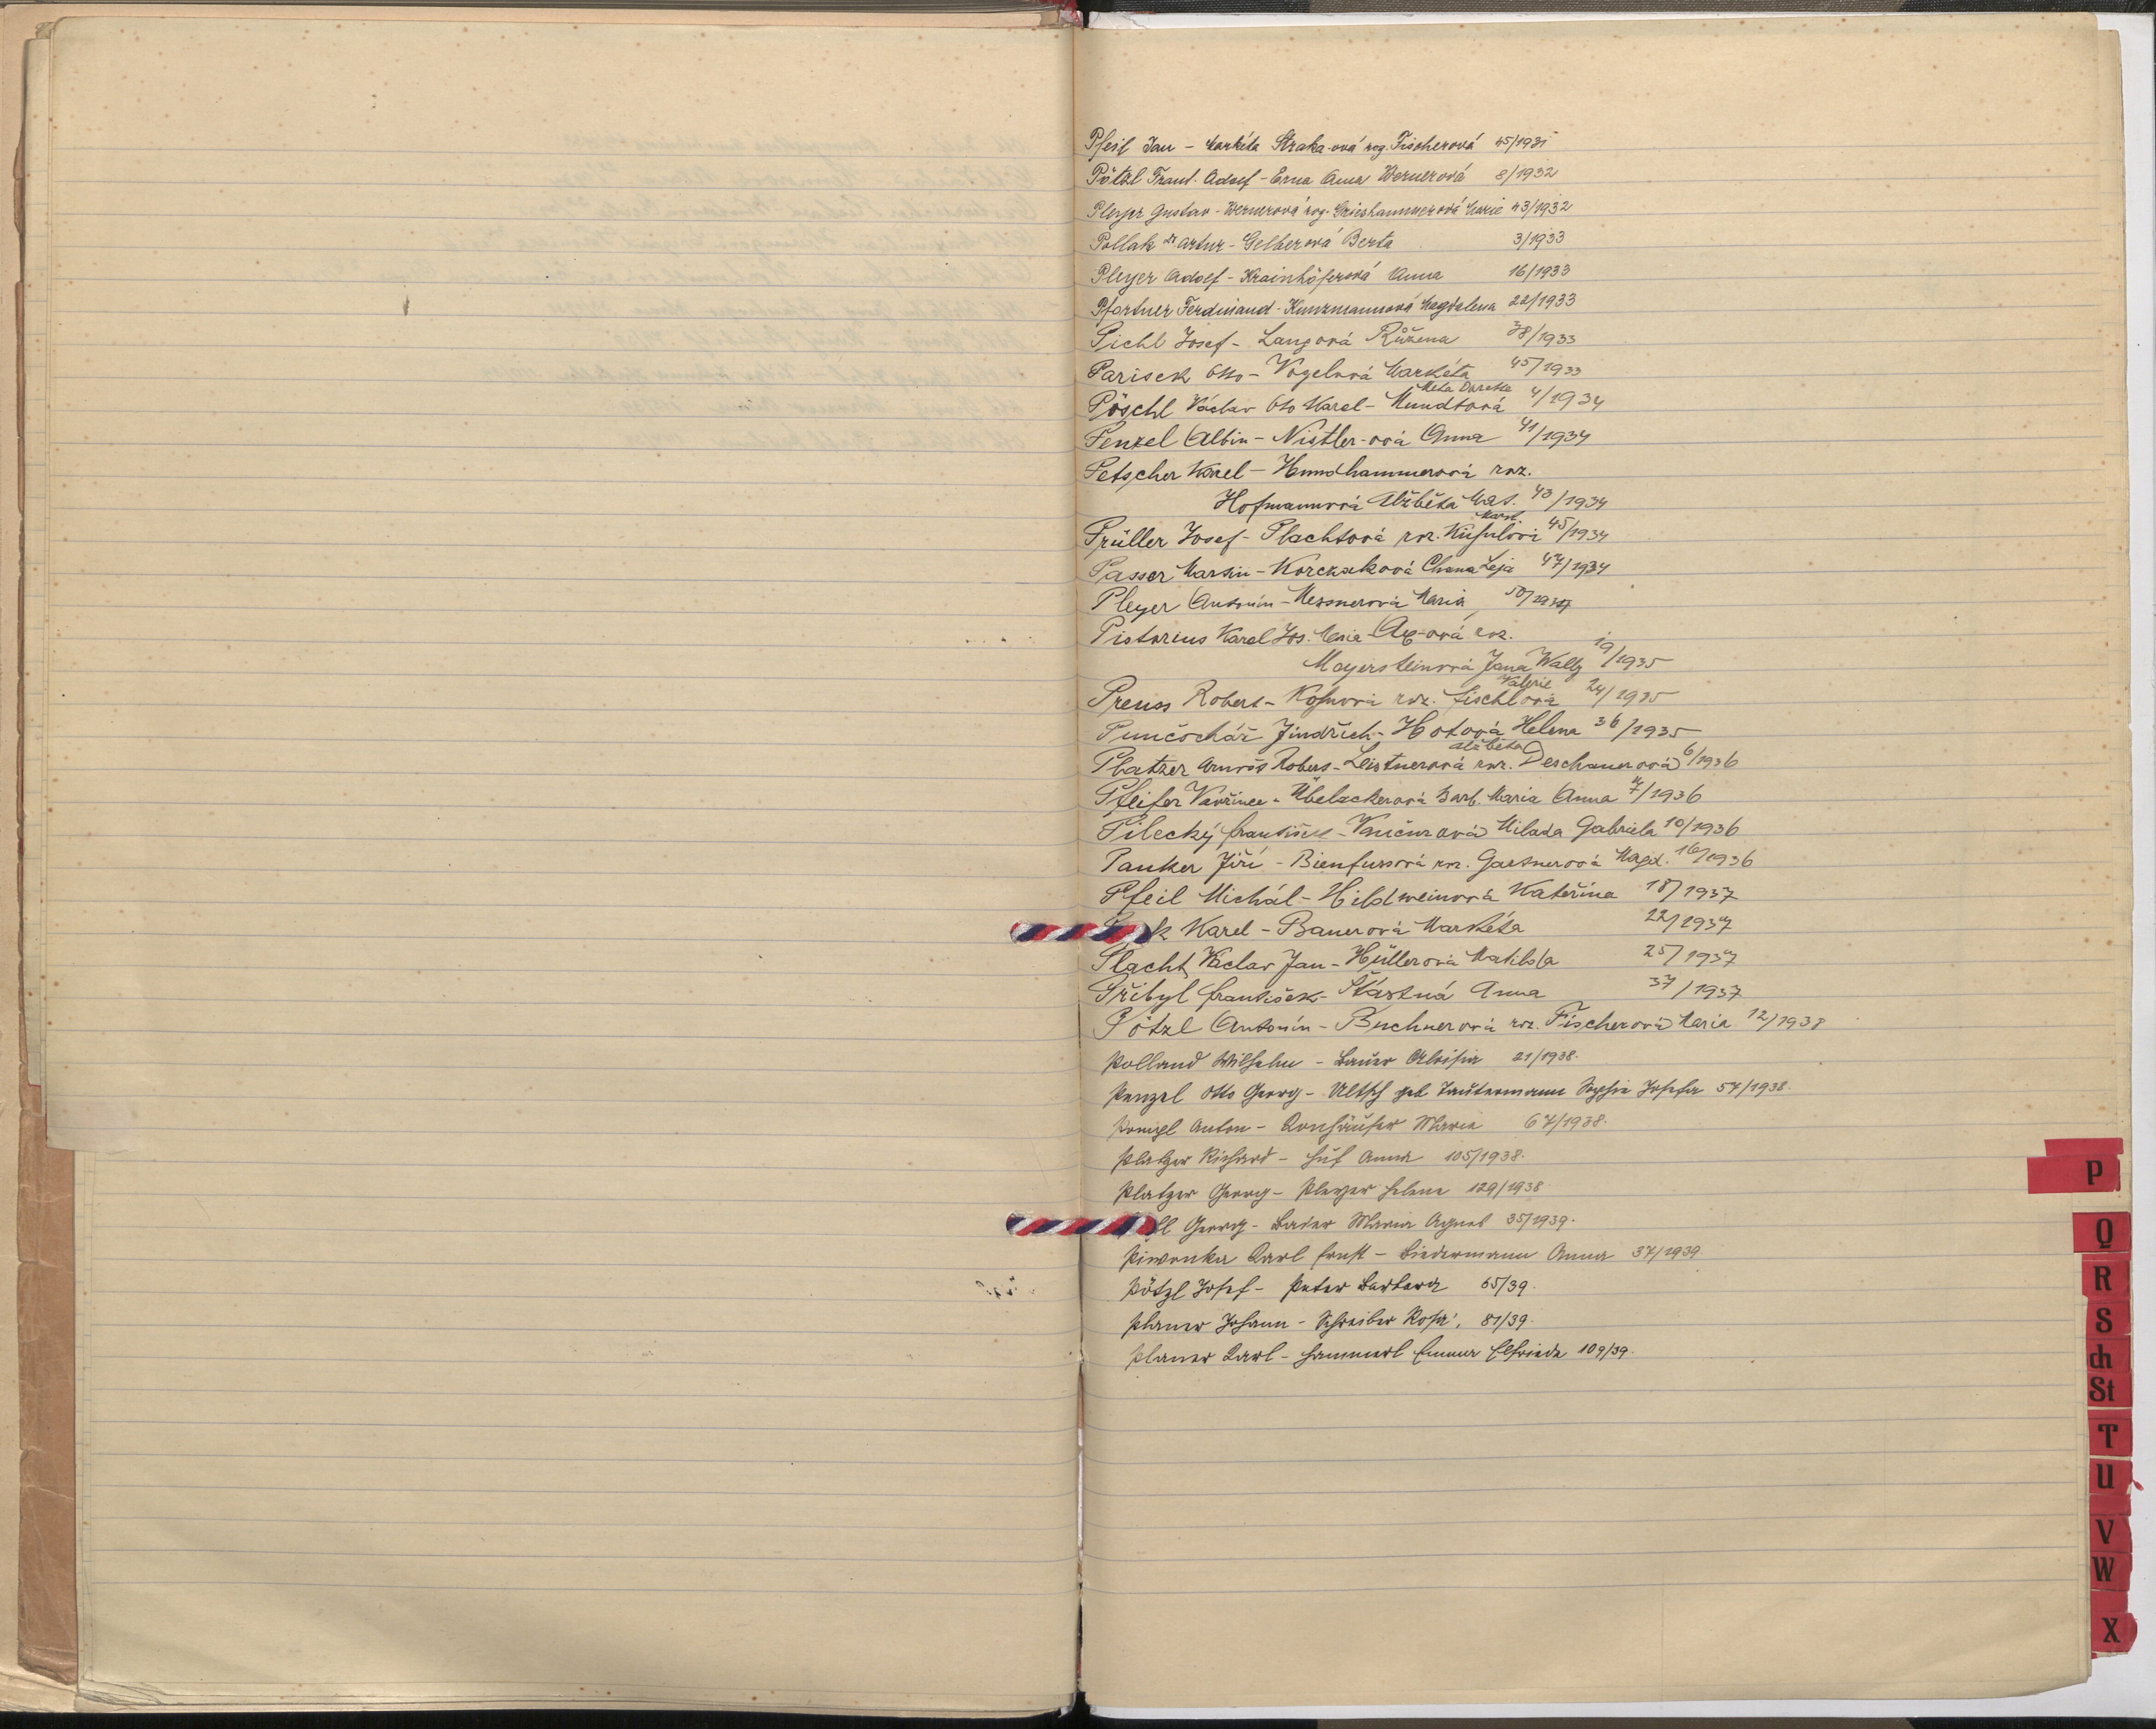 Pfeil Jan - Markéta Straka-ová roz. Fischerová 45/1931
Pötzl Frant. Adolf - Erna Anna Wernerová 8/1932
Pleyer Gustav - Wernerová roz. Grieshammerová Marie 43/1932
Pollak Dr Artur - Gelberová Berta 3/1933
Pleyer Adolf - Krainhöferová Anna 16/1933
Pfortner Ferdinand - Kunzmannová Magdalena 22/1933
Pichl Josef - Langová Růžena 38/1933
Parisek Otto - Vogelová Markéta 45/1933
Meta Dorette
Pöschl Václav Oto Karel - Mundtová 4/1934
Penzel Albin - Nistler-ová Anna 41/1934
Petscher Karel - Hundhammerová roz.
Hofmannová Alžběta Mar. 43/1934
Prüller Josef - Plachtová roz. 45/1934
Passer Martin - Korczaková Chana Leja 47/1934
Pleyer Antonín - Messnerová Maria 50/1934
Pistorius Karel Jos. Maria - Ax-ová roz.
Mayersteinová Jana Wally 19/1935
Valerie
Preuss Robert - Kohnová roz. Fischlová 24/1935
Punčochář Jindřich - Hotová Helena 36/1935
Alžběta
Platzer Arnošt Robert - Leistnerová roz. Deschauerová 6/1936
Pfeifer Vavřinec - Übelackerová Barb. Maria Anna 7/1936
Pilecký František - Vančurová Milada Gabriela 10/1936
Panker Jiří - Bienfussová roz. Gartnerová Magd. 16/1936
Pfeil Michál - Hildweinová Kateřina 18/1937
k Karel - Bauerová Markéta 22/1937
Placht Václav Jan - Müllerová Matilda 25/1937
Přibyl František - Šťastná Anna 37/1937
Pötzl Antonín - Buchnerová roz. Fischerová Maria 12/1938
Polland Wilhelm - Bauer Aloisia 21/1938.
Penzel Otto Georg - Altsch geb Trautermann Sophie Josefa 54/1938.
Anton - Konhäuser Maria 67/1938.
Platzer Richard - Süß Anna 105/1938.
Platzer Georg - Pleyer Helene 129/1938
l Georg - Bader Maria Agnes 35/1939.
Piwonka Karl Ernst - Biedermann Anna 37/1939
Pötzl Josef - Peter Barbara 65/39.
Planer Johann - Schreiber Rosa, 81/39.
Planer Karl - Hammerl Emma Elfriede 109/39.
P
Q
R
S
ch
St
T
U
V
W
X